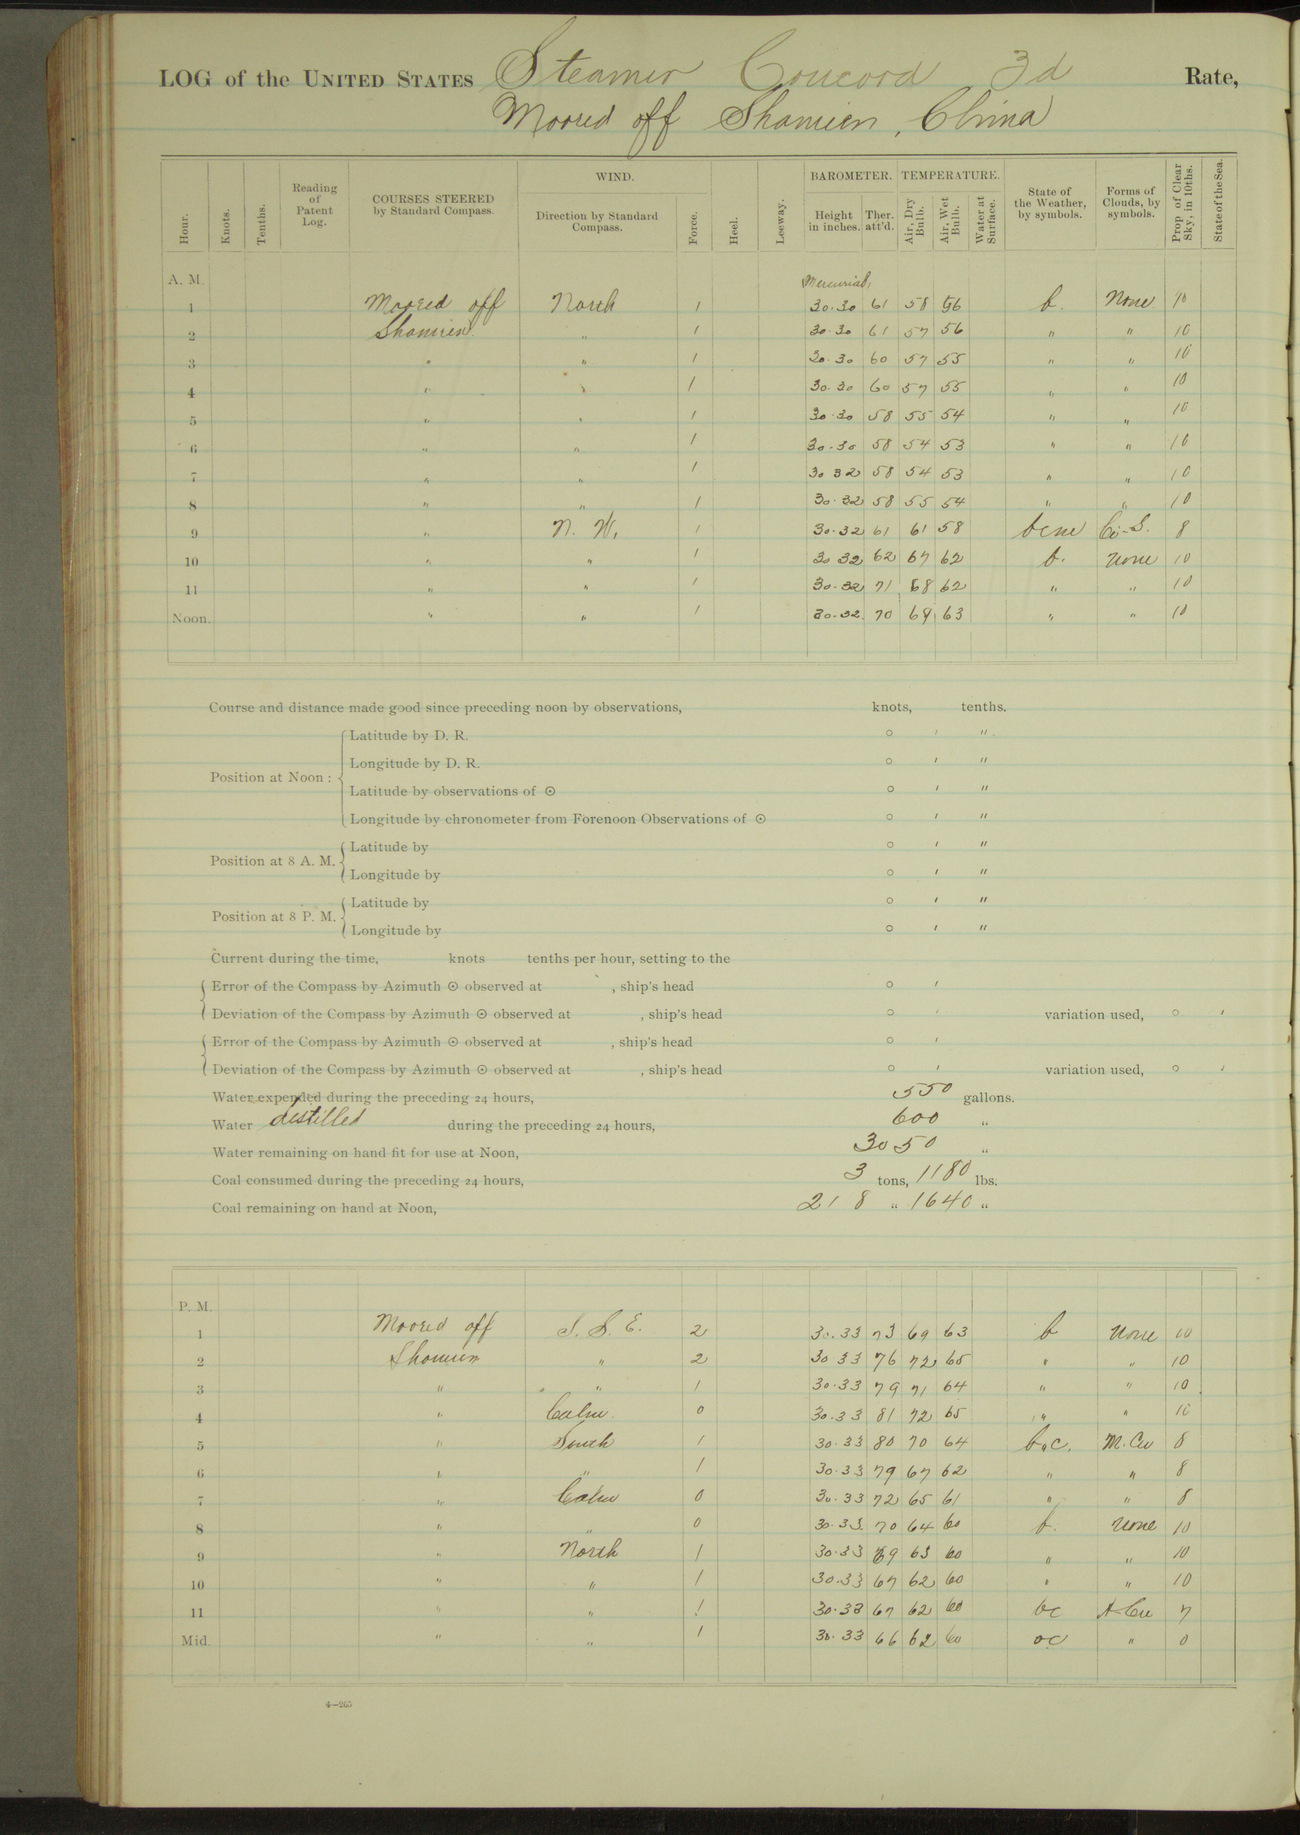 LOG of the UNITED STATES Steamer Concord 3d Rate,
Moored off Shamien, China
Hour. Knots. Tenths. Reading of Patent Log. COURSES STEERED by Standard Compass. WIND. Direction by Standard Compass. Force. Heel. Leeway. BAROMETER. Height in inches. Ther. att'd. TEMPERATURE. Air, Dry Bulb. Air, Wet Bulb. Water at Surface. State of the Weather, by symbols. Forms of Clouds, by symbols. Prop of Clear Sky, in 10ths. State of the Sea.
A. M. Mercurial,
1 Moored off North 1 30.30 61 58 56 b. None 10
2 Shamien " 1 30.30 61 57 56 " " 10
3 " " 1 30.30 60 57 55 " " 10
4 " " 1 30.30 60 57 55 " " 10
5 " " 1 30.30 58 55 54 " " 10
6 " " 1 30.30 58 54 53 " " 10
7 " " 1 30 32 58 54 53 " " 10
8 " " 1 30.32 58 55 54 " " 10
9 " N. W. 1 30.32 61 61 58 bcm Ci-S. 8
10 " " 1 30 32 62 67 62 b. None 10
11 " " 1 30.32 71 68 62 " " 10
Noon. " " 1 30.32 70 69 63 " " 10
Course and distance made good since preceding noon by observations, knots, tenths.
Position at Noon:
Latitude by D. R. ° ' "
Longitude by D. R. ° ' "
Latitude by observations of ☉ ° ' "
Longitude by chronometer from Forenoon Observations of ☉ ° ' "
Position at 8 A. M.
Latitude by ° ' "
Longitude by ° ' "
Position at 8 P. M.
Latitude by ° ' "
Longitude by ° ' "
Current during the time, knots tenths per hour, setting to the
Error of the Compass by Azimuth ☉ observed at , ship's head ° '
Deviation of the Compass by Azimuth ☉ observed at , ship's head ° ' variation used, ° '
Error of the Compass by Azimuth ☉ observed at , ship's head ° '
Deviation of the Compass by Azimuth ☉ observed at , ship's head ° ' variation used, ° '
Water expended during the preceding 24 hours, 550 gallons.
Water distilled during the preceding 24 hours, 600 "
Water remaining on hand fit for use at Noon, 3050 "
Coal consumed during the preceding 24 hours, 3 tons, 1180 lbs.
Coal remaining on hand at Noon, 218 " 1640 "
P. M.
1 Moored off S. S. E. 2 30.33 73 69 63 b None 10
2 Shamien " 2 30 33 76 72 65 " " 10
3 " " 1 30.33 79 71 64 " " 10
4 " Calm 0 30.33 81 72 65 " " 10
5 " South 1 30.33 80 70 64 b.c. M. Cu 8
6 " " 1 30.33 79 67 62 " " 8
7 " Calm 0 30.33 72 65 61 " " 8
8 " " 0 30.33 70 64 60 b. None 10
9 " North 1 30.33 69 63 60 " " 10
10 " " 1 30.33 67 62 60 " " 10
11 " " 1 30.33 67 62 60 bc A-Cu 7
Mid. " " 1 30.33 66 62 60 oc " 0
4—265